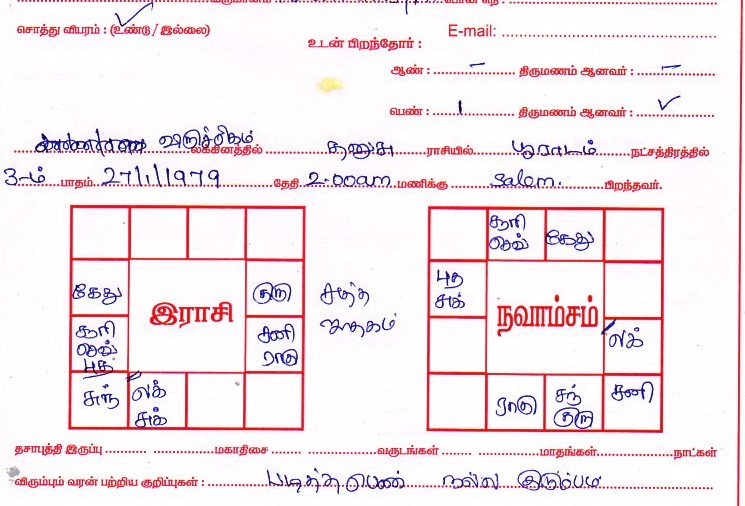 சொத்து விபரம் : (உண்டு / இல்லை)
உடன் பிறந்தோர் :
E-mail:
ஆண் : – திருமணம் ஆனவர் : –
பெண் : 1 திருமணம் ஆனவர் : ✓
விருச்சிகம் லக்கினத்தில் தனுசு ராசியில் பூராடம் நட்சத்திரத்தில்
3-ம் பாதம் 27/1/1979 தேதி 2.00am மணிக்கு Salem. பிறந்தவர்.
சூரி செவ் கேது
கேது குரு சுத்த ஜாதகம் புத சுக்
இராசி நவாம்சம்
சூரி செவ் புத சனி ராகு லக்
சந் லக் சுக் ராகு சந் குரு சனி
தசாபுத்தி இருப்பு மகாதிசை வருடங்கள் மாதங்கள் நாட்கள்
விரும்பும் வரன் பற்றிய குறிப்புகள் : படித்த பெண் நல்ல குடும்பம்